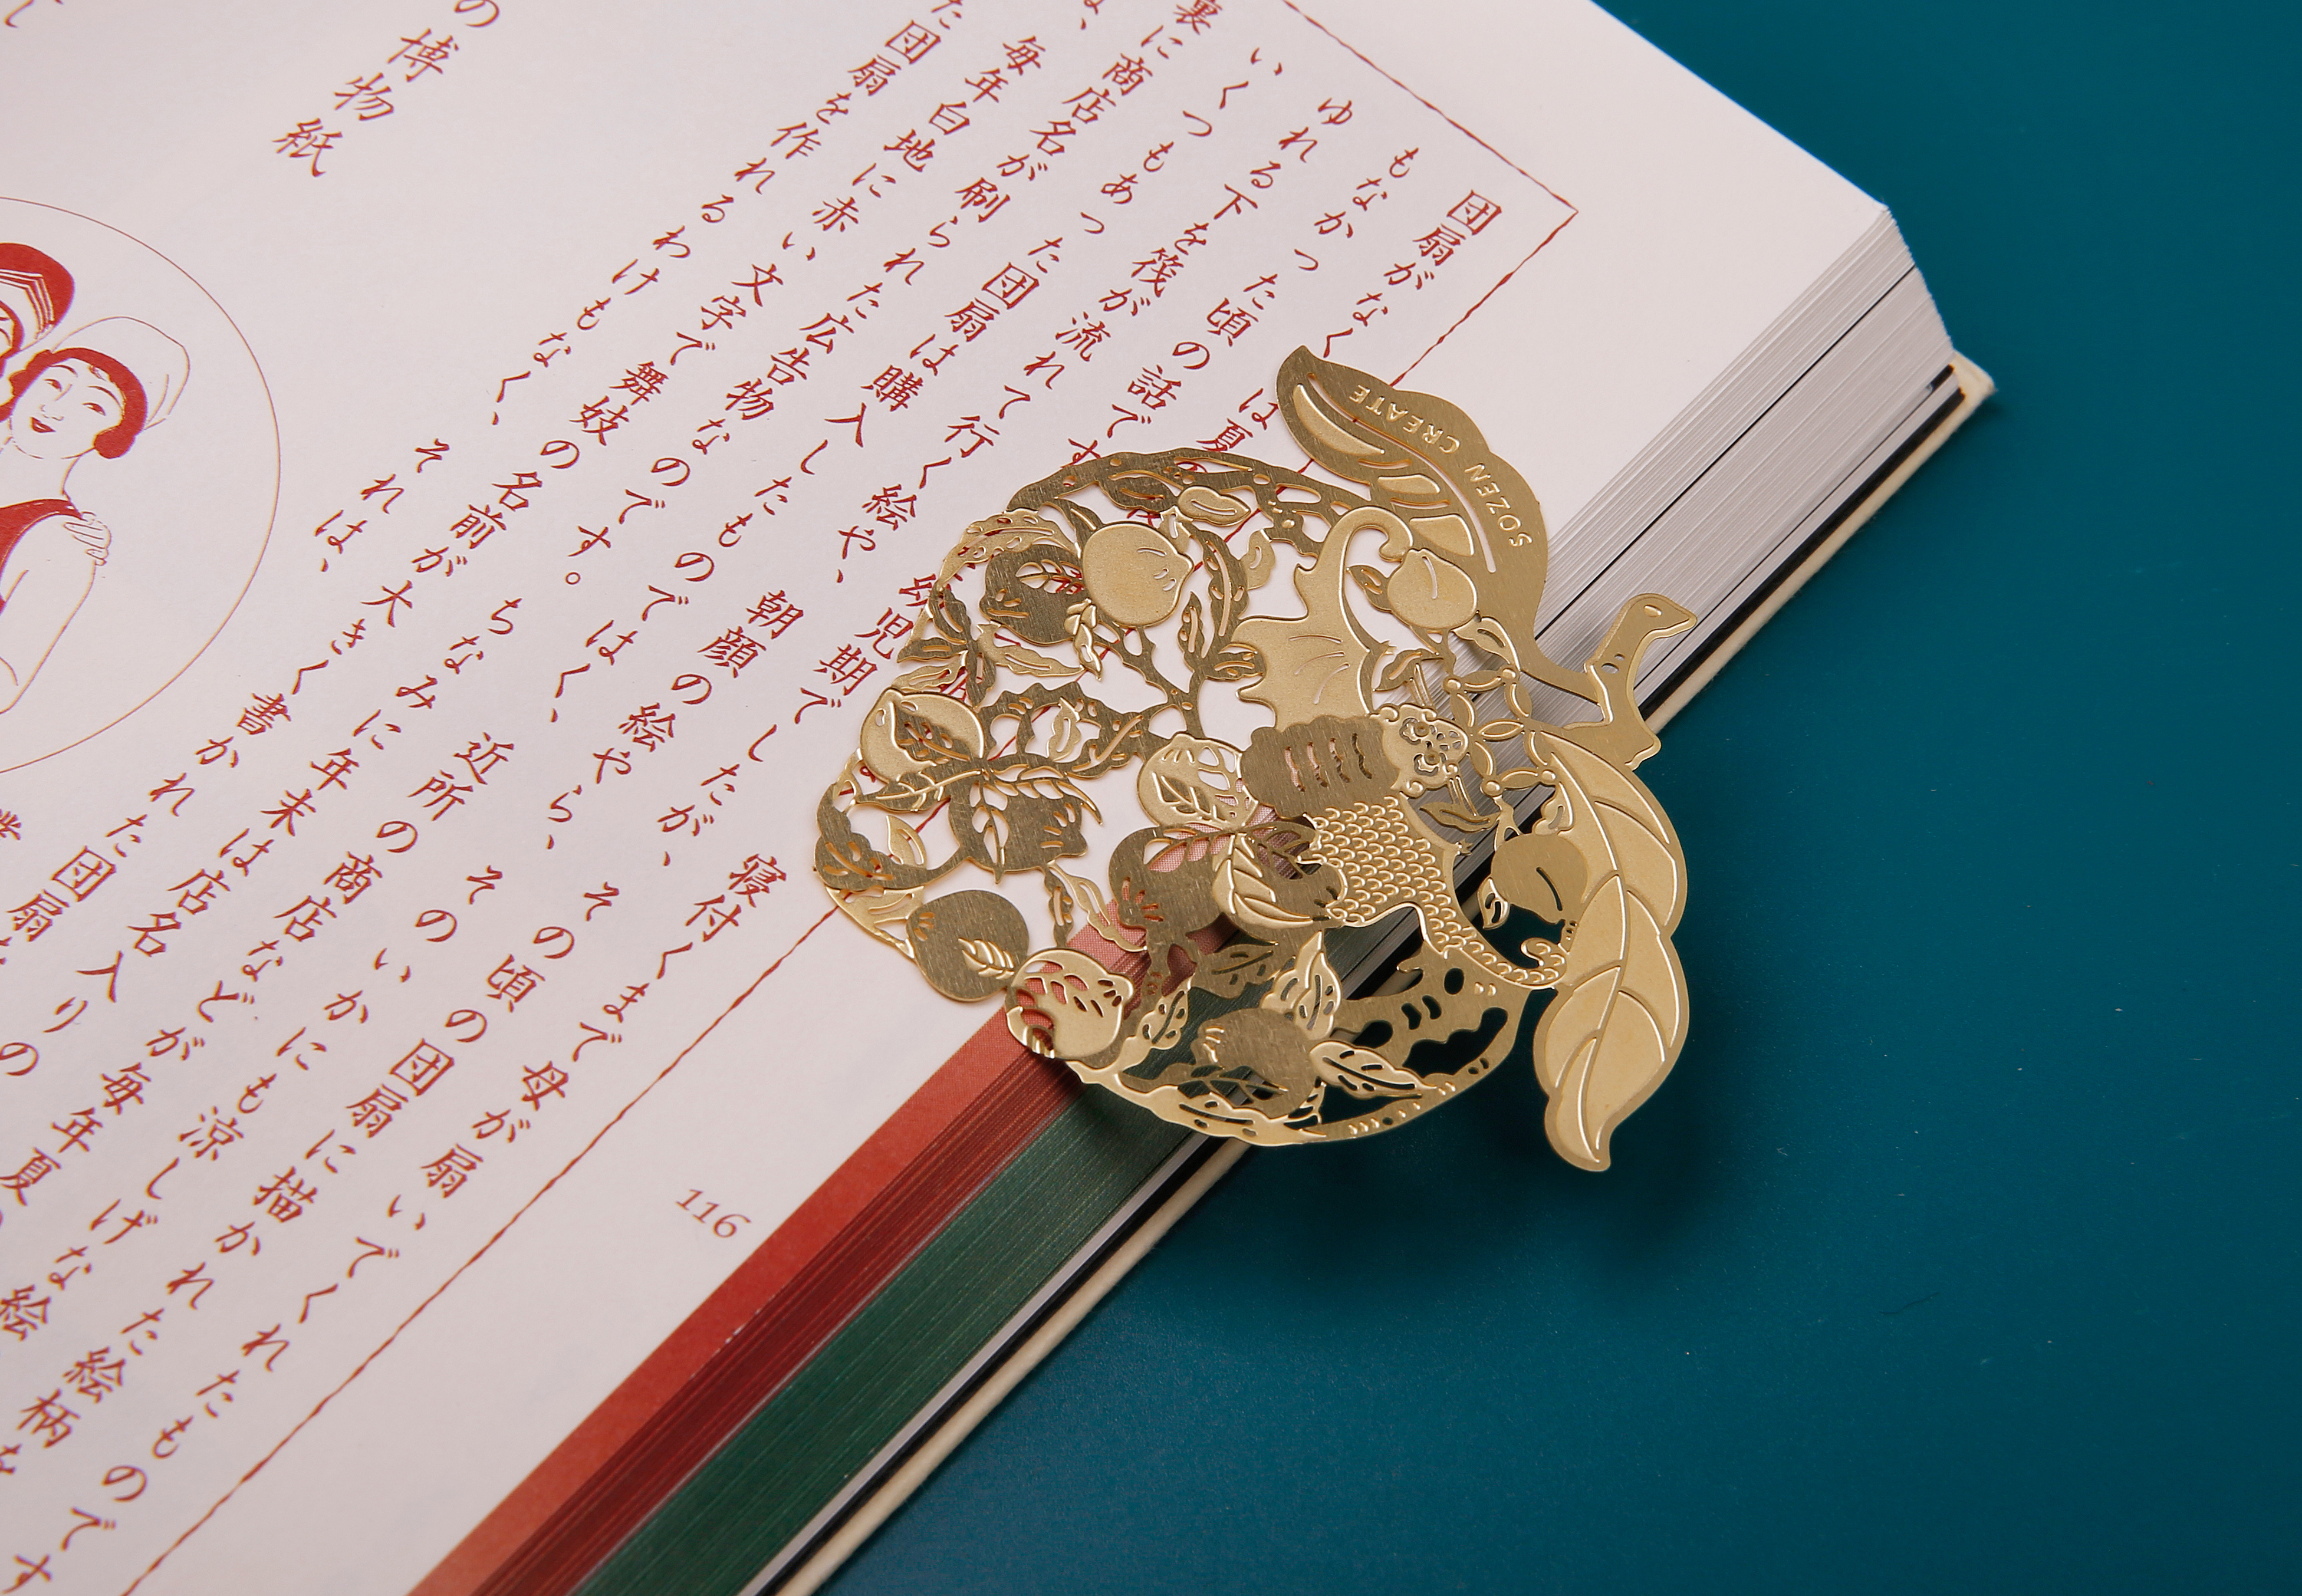 団扇がなく
は夏の
寝付くまで母が扇いでくれたものです
もなかった頃の話です
幼児期でしたが、その頃の団扇に描かれた絵柄を
ゆれる下を筏が流れて行く絵や、朝顔の絵やら、そのいかにも涼しげな絵
いくつもあった団扇は購入したものではく、近所の商店などが毎年夏
裏に商店名が刷られた広告物なのです。ちなみに年末は店名入りの
、毎年白地に赤い文字で舞妓の名前が大きく書かれた団扇
た団扇を作れるわけもなく、それは、
の博物紙
116
SOZEN CREATE